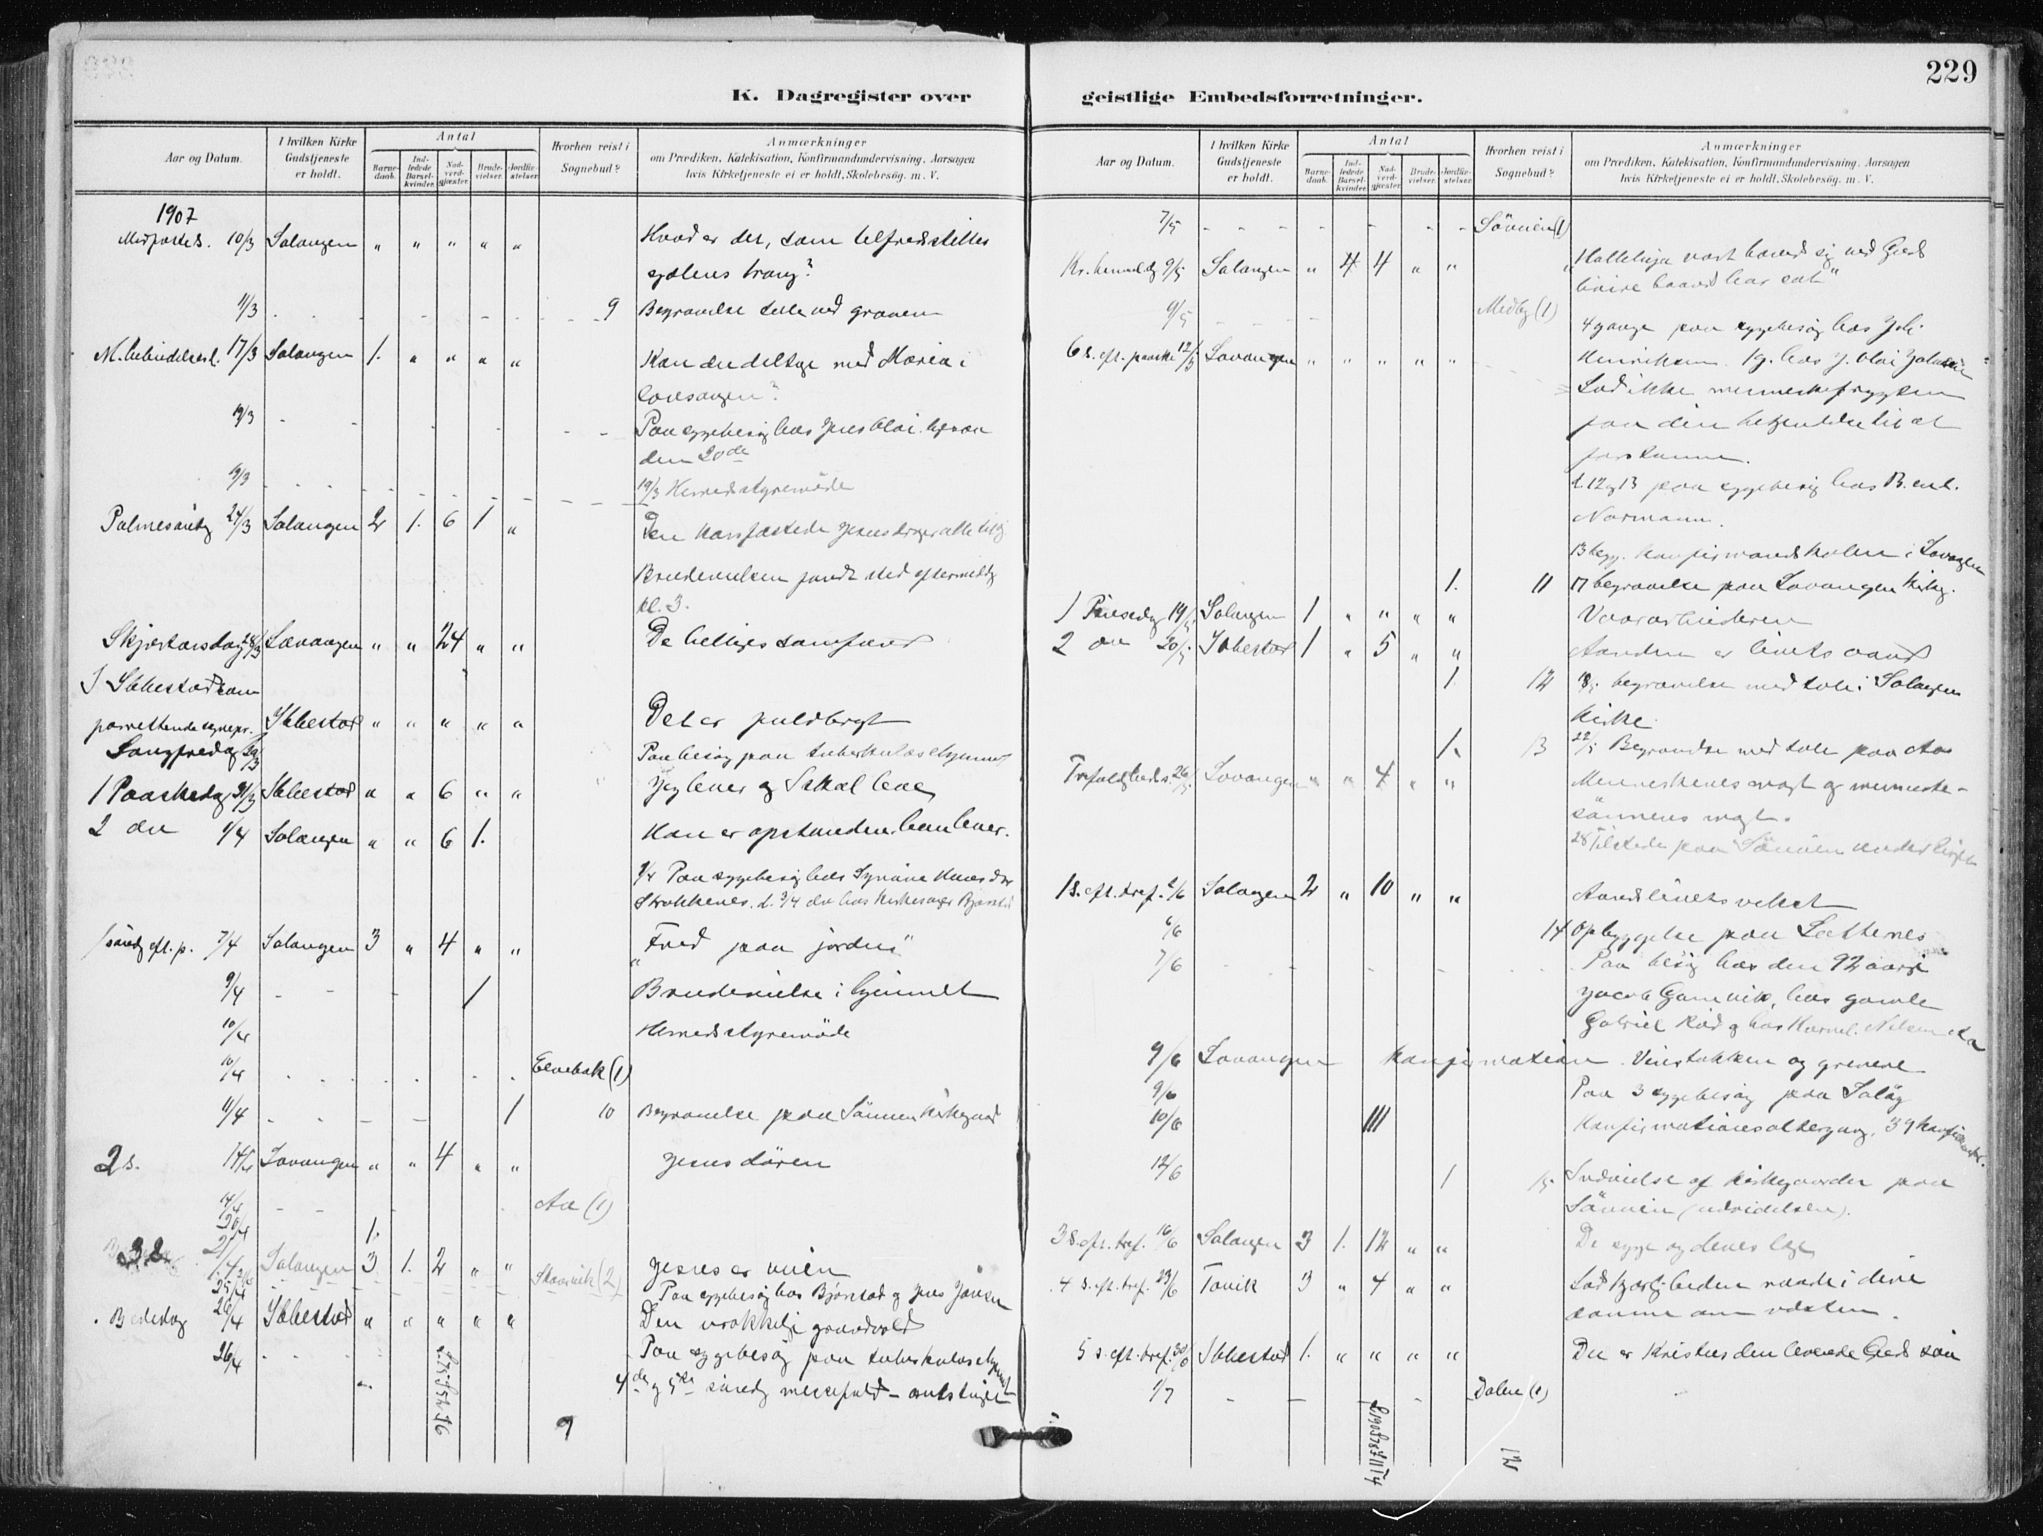 229
K. Dagregister over geistlige Embedsforretninger.
Aar og Datum.
I hvilken Kirke Gudstjeneste er holdt.
Antal
Barne-daab.
Ind-ledede Barsel-kvinder.
Nad-verd-gjæster.
Brude-vielser.
Jordfæ-stelser.
Hvorhen reist i Sognebud?
Anmærkninger
om Prædiken, Katekisation, Konfirmandundervisning, Aarsagen
hvis Kirketjeneste ei er holdt, Skolebesøg. m. V.
1907
Midfastes. 10/3 Salangen " " " " " Hvad er det, som tilfredsstiller
sjælens trang?
11/3 9 Begravelse tale ved graven
M. bebudelsesd. 17/3 Salangen 1. " " " " Kan du deltage med Maria i
lovsangen?
19/3 Paa sygebesøg hos Jens Olai
den 20de
19/3 19/3 Herredsstyremöde
Palmesöndg 24/3 Salangen 2 1. 6 1 " Den korsfæstede Jesus drager alle til sig
Brudevielsen fandt sted eftermiddg
kl. 3.
Skjærtorsdag 28/3 Lavangen " " 24 " " De helliges samfund
I Ibbestad som
forrettende sognepr. Ibbestad " " " " " Det er fuldbragt
Langfredag 29/3 Paa besøg paa tuberkulosehjemmet
1 Paaskedag 31/3 Ibbestad " " 6 " " Jeg lever og I skal leve
2 den 1/4 Salangen " " 6 1. Han er opstanden, han lever.
1/4 Paa sygebesøg hos
d. 3/4 hos Kirkesanger Bjørstad
1 søndg eft. p. 7/4 Salangen 3 " 4 " " "Fred paa jorden"
9/4 1 Brudevielse i hjemmet
10/4 Herredsstyremöde
10/4 Elvebak (1)
11/4 1 10 Begravelse paa Sännen Kirkegaard
2 s. 14/4 Lavangen " " 4 " " Jesus dören
14/4 Aa (1)
20/4 1.
3 s. 21/4 Salangen 3 1. 2 " " Jesus er veien
25/4 (2) Paa sygebesøg hos Bjørstad og Jens Jensen
Bededag 26/4 Ibbestad " " " " " Den urokkelige grundvold
26/4 Paa sygebesøg paa tuberkulosehjemmet
4de og 5te søndg messefald – amtstinget
9
Aar og Datum.
I hvilken Kirke Gudstjeneste er holdt.
Antal
Barne-daab.
Ind-ledede Barsel-kvinder.
Nad-verd-gjæster.
Brude-vielser.
Jordfæ-stelser.
Hvorhen reist i Sognebud?
Anmærkninger
om Prædiken, Katekisation, Konfirmandundervisning, Aarsagen
hvis Kirketjeneste ei er holdt, Skolebesøg. m. V.
7/5 Sövveien (1)
Kr. himmelfdg 9/5 Salangen " 4 4 " " "Halleluja vort haand sig ved Guds
höire haand har sat"
9/5 Medby (1)
4 gange paa sygebesøg hos Joh.
6 s. eft. paaske 12/5 Lavangen " " " " " Henriksen. 1 g. hos J. Olai
Lad ikke menneskefrygten
faa din bekjendelse til at
forstumme.
d. 12 og 13 paa sygebesøg hos B. enl.
Normann.
13 begg. konfirmandskolen i Lavangen
1. 11 17 begravelse paa Lavangen kirkeg.
1 Pinsedag 19/5 Salangen 1 " " " " Vaararbeideren
2 den 20/5 Ibbestad 1 " 5 " " Aanden er livets aand
1. 12 18/5 begravelse med tale i Salangen
kirke.
1. 13 22/5 Begravelse med tale paa Aas
Trefoldigheds. 26/5 Lavangen " " 4 " " Menneskenes magt og menneske-
sønnens magt.
28 Tilstede paa
1 s. eft. tref. 2/6 Salangen 2 " 10 " " Aandslivets vekst
6/6 14 Opbyggelse paa Løttenes
7/6 Paa besøg hos den 92 aarige
Jacob Gamvik, hos gamle
Gabriel Rød og hos Kornel. Nilsen Aa
9/6 Lavangen Konfirmation. Vinstokken og grenene
9/6 Paa 3 sygebesøg paa Salöy
10/6 111 Konfirmationsaltergang, 39 konfirmanter.
12/6 1 15 Indvielse af kirkegaarden paa
Sännen (udvidelsen).
3 s. eft. tref. 16/6 Salangen 3 1. 12 " " De syge og deres læge
4 s. eft. tref. 23/6 Tovik 3 " 4 " " Lad kjærligheden raade i dine
domme om næsten.
5 s. eft. tref. 30/6 Ibbestad 1. " " " " Du er Kristus den levende Guds søn
1/7 Dalen (1)
12